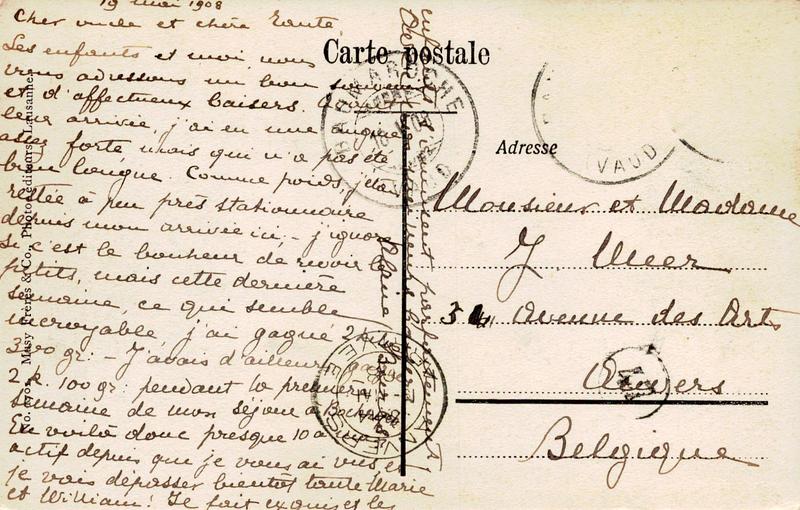 19 mai 1908
Cher oncle et chère Tante,
Les enfants et moi, nous
vous adressons un bon souvenir
et d'affectueux baisers. A
leur arrivée, j'ai eu une
assez forte mais qui n'a pas été
bien longue. Comme poids, j'étais
restée à peu près stationnaire
depuis mon arrivée ici – j'ignore
si c'est le bonheur de revoir les
petits, mais cette dernière
semaine, ce qui semble
incroyable, j'ai gagné 2 kilos
300 gr. – J'avais d'ailleurs gagné
2 k. 100 gr. pendant la première
semaine de mon séjour à
En voilà donc presque 10 à mon
actif depuis que je vous ai vus et
je vais dépasser bientôt tante Marie
et William! Le fait exquis et les
enfants jouissent parfaitement
Carte postale
BAUMAROCHE
VAUD
Adresse
Monsieur et Madame
J. Meer
34 Avenue des Arts
Anvers
Belgique
ANVERS
Co. 2705. Massy Frères & Co., Photo-éditeurs, Lausanne.